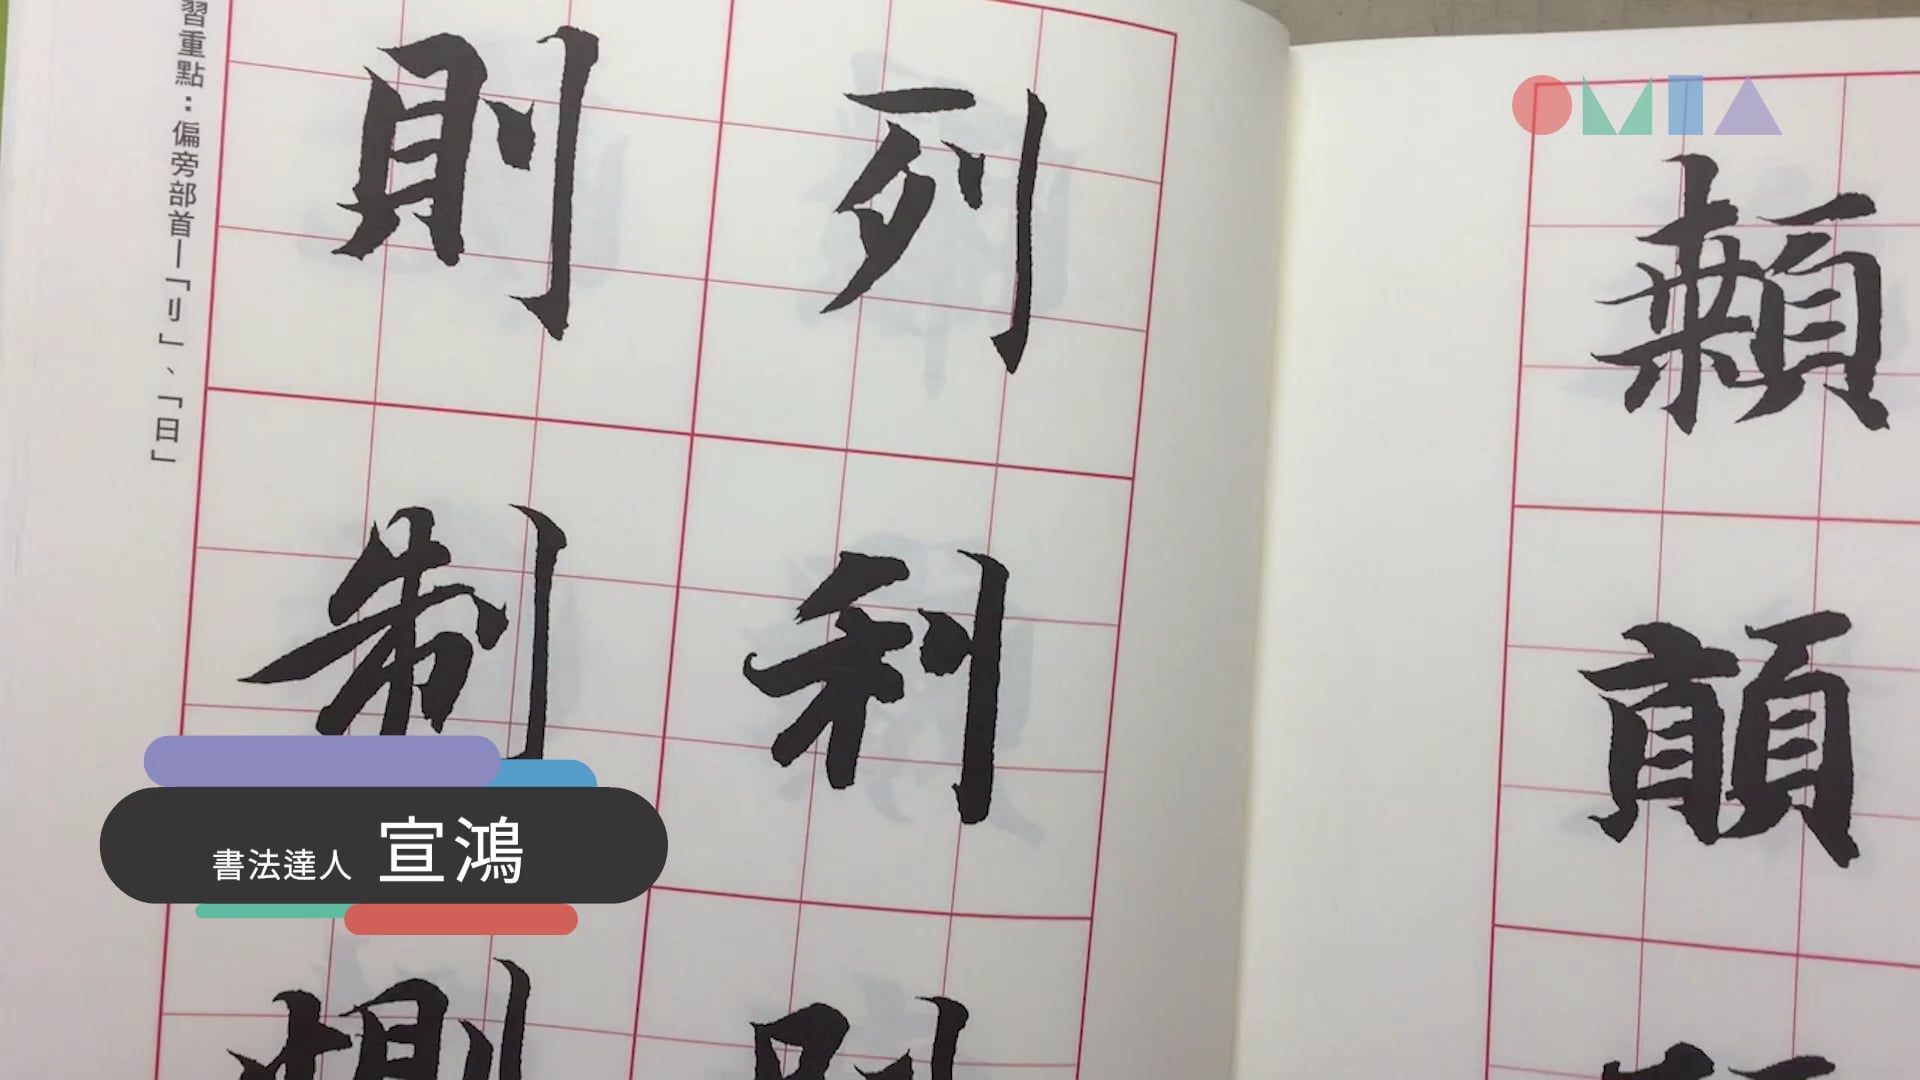 習重點：偏旁部首—「刂」、「日」
列
利
別
則
制
側
OMIA
顙
顛
書法達人 宣鴻